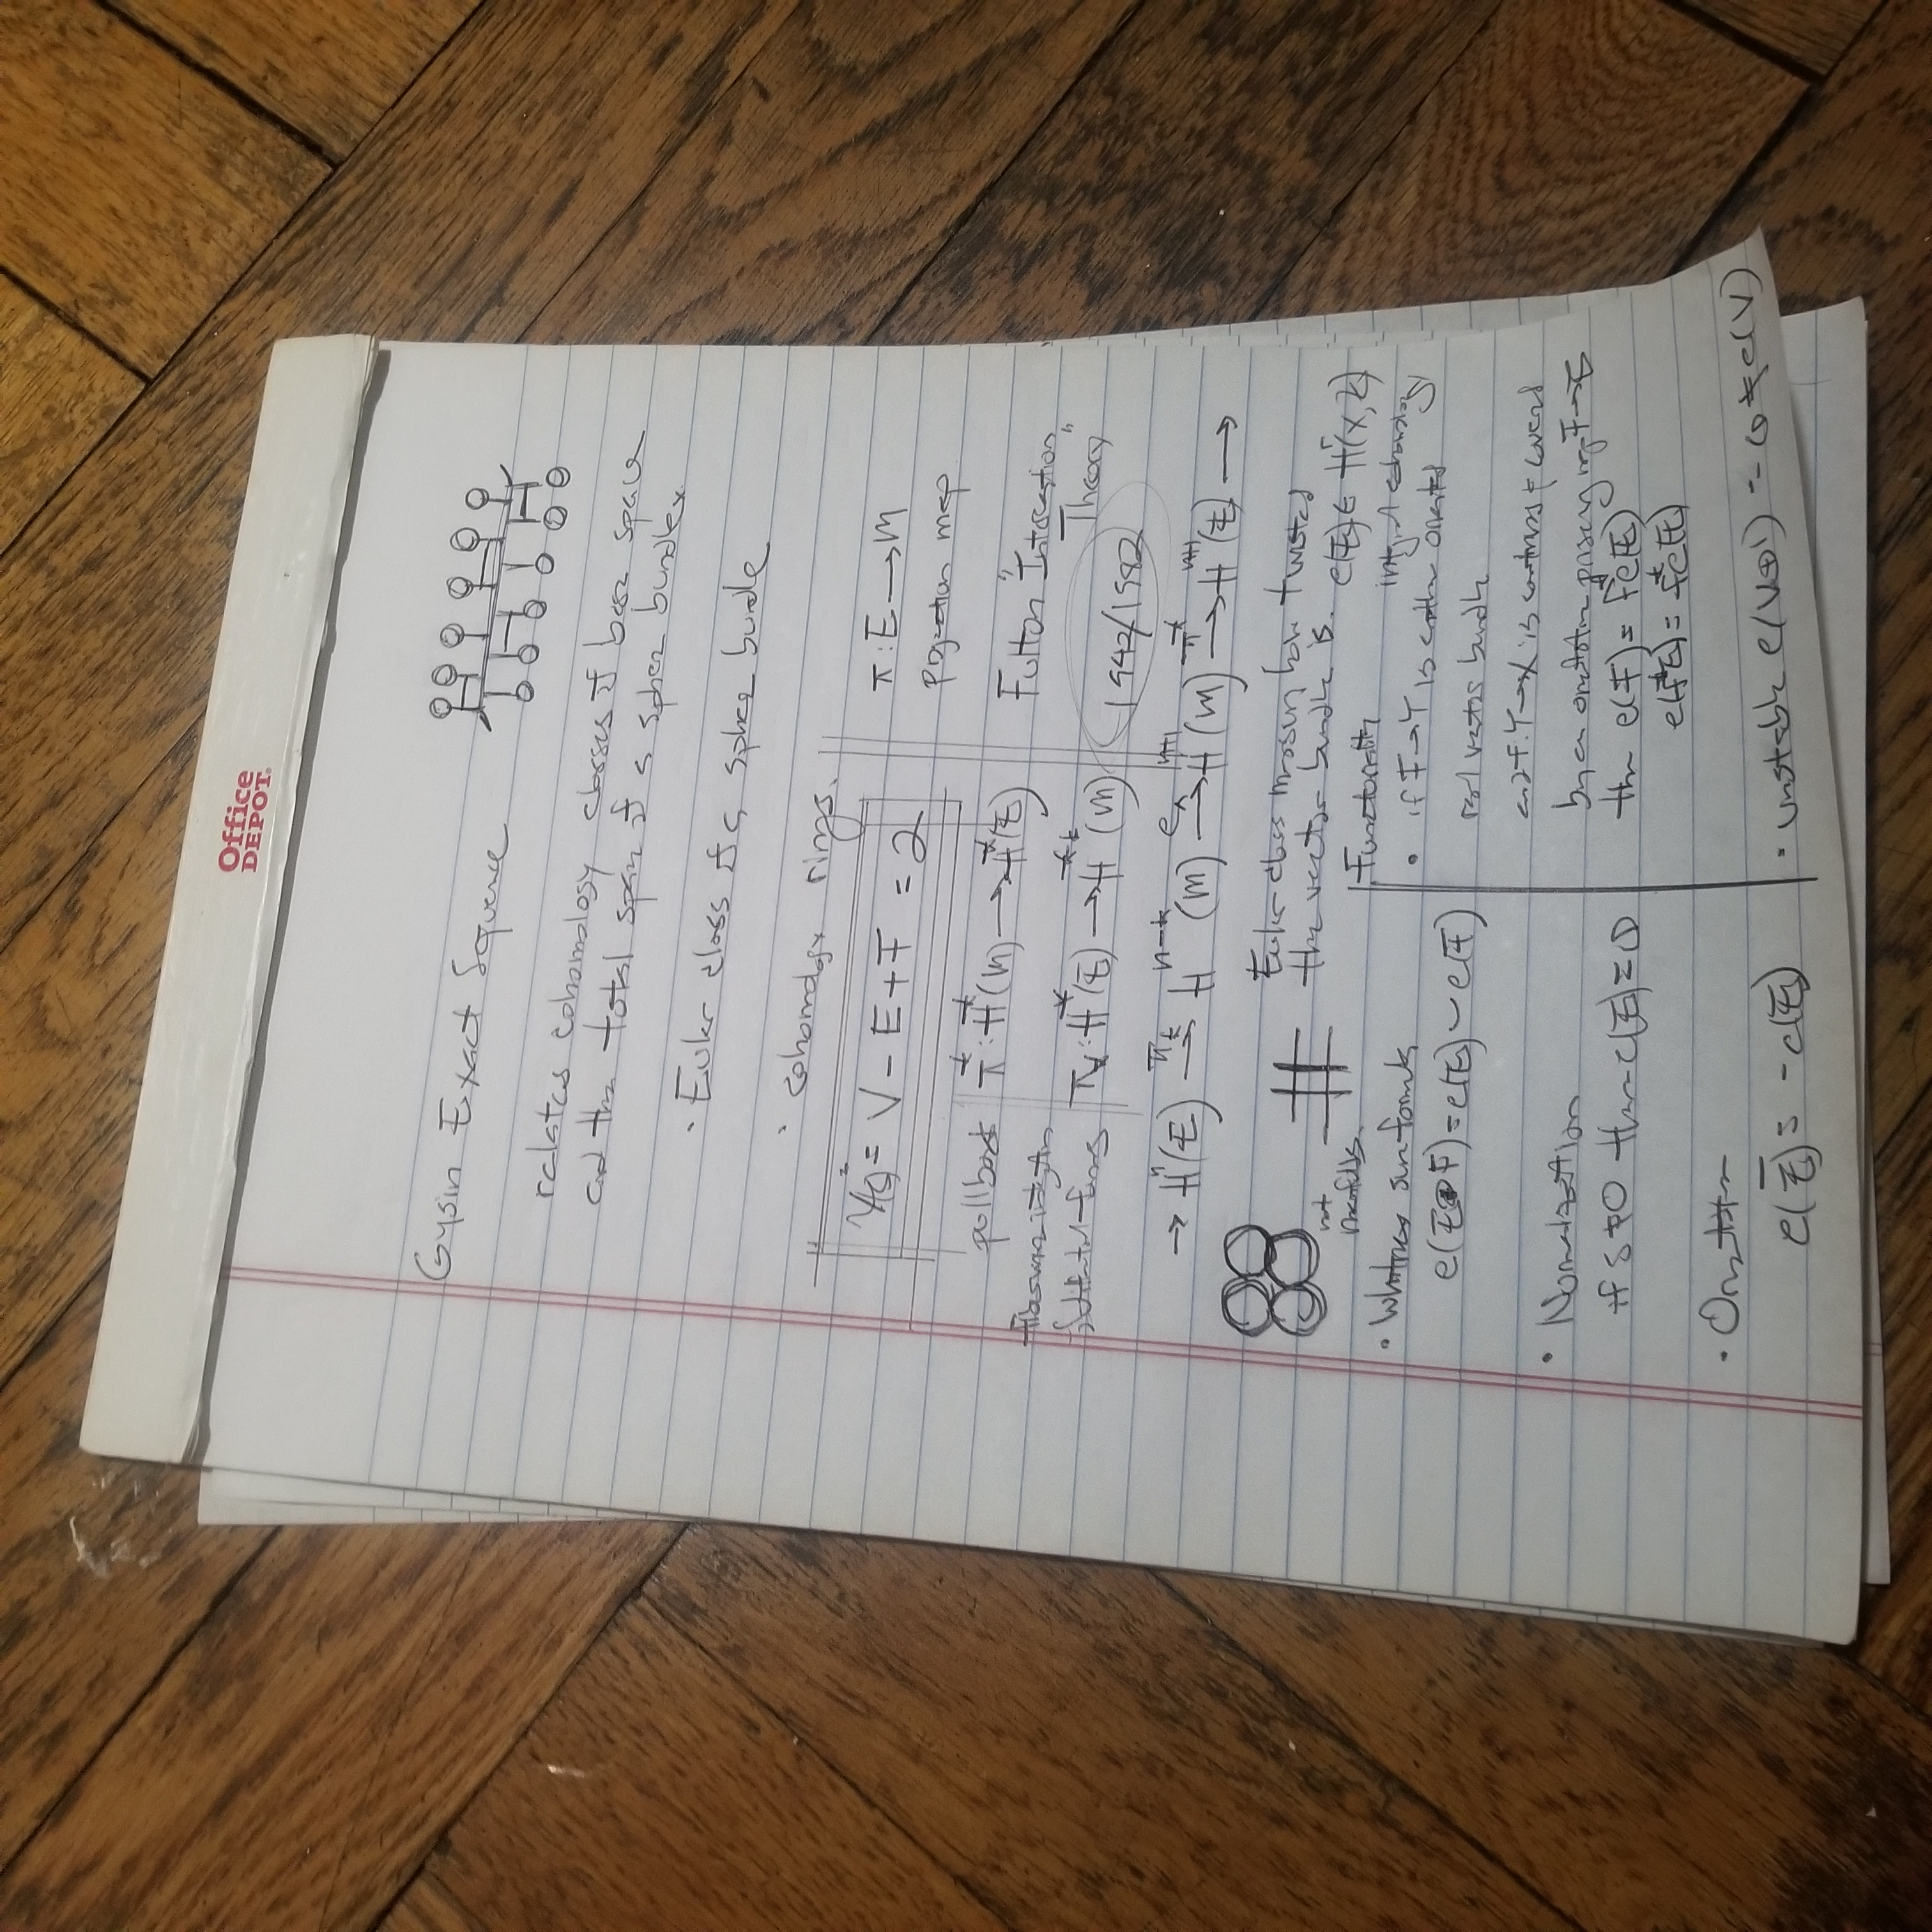 Office
DEPOT
Gysin Exact Squence
relates cohomology classes of base space
and the total space of a sphere bundle.
· Euler class of a sphere bundle
· cohomology rings.
= V - E + F = 2
π : E → M
projection map
pullback π* : H*(M) → H*(E)
Fulton "Intersection
Theory"
π* : H*(E) → H (M)
1942/1982
→ Hⁿ(E) → Hⁿ⁻ᵏ(M) → Hⁿ⁺¹(M) → Hⁿ⁺¹(E) →
Euler class measures how twisted
the vector bundle is.
e(E) ∈ Hʳ(X, Z)
integral cohomology
not
manifolds.
· Whitney sum formula
e(E⊕F) = e(E) ⌣ e(F)
· Normalization
if s ≠ 0 then e(E) = 0
· Orientation
e(Ē) = -e(E)
Functoriality
· if F → Y is another oriented
real vector bundle
and f: Y → X is continuous & covered
by an orientation preserving map F → E
then e(F) = f*e(E)
e(f*E) = f*e(E)
· unstable e(V⊕1) = 0 ≠ e(V)